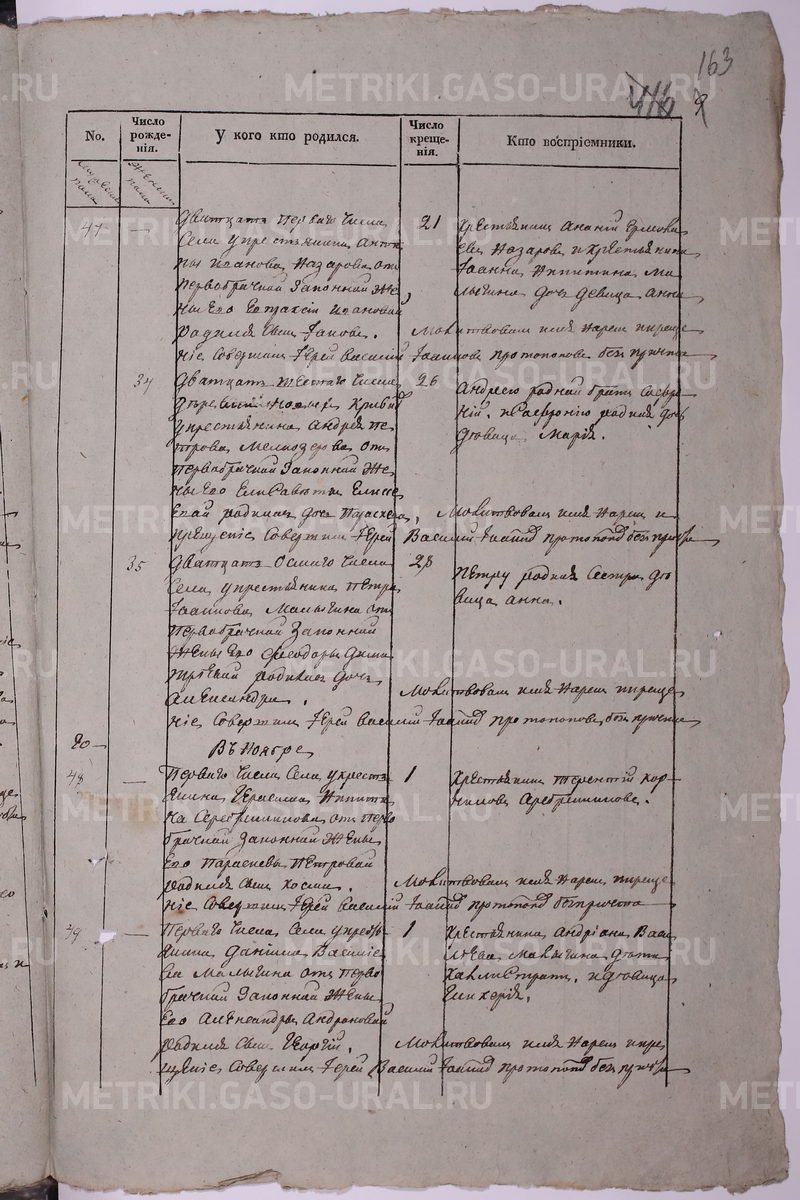 163
416
No.
Число рожде-нія.
У кого кто родился.
Число креще-нія.
Кто воспріемники.
47
Дватцать перваго числа
21
Села у крестьянина
Иванова Назарова отъ
первобрачной законной же
ны его Иановой
родился сынъ Іаковъ.
Крестьянинъ Ананій
евъ Назаровъ, и крестьянина
Іоанна Никитина Ма
лыгина дочь девица Анна
Молитвовалъ имя нарекъ и креще
ніе совершилъ Іерей Василій Іоанновъ Протопоповъ безъ причта
34
Дватцать шестаго числа
26
деревни
у крестьянина Андрея Пе
трова отъ
первобрачной законной же
ны его Елисаветы Елисе
евой родилась дочь Параскева,
Андрею родной братъ
ній. и родная дочь
девица Марія.
Молитвовалъ имя нарекъ и
крещеніе совершилъ Іерей Василій Протопоповъ безъ причта
35
Дватцать осмаго числа
28
Села у крестьянина Петра
Іоаннова Малыгина отъ
первобрачной законной
жены его Феодоры Дими
тріевой родилась дочь
Александра.
Петру родная сестра де
вица Анна.
Молитвовалъ имя нарекъ и креще
ніе совершилъ Іерей Василій Протопоповъ безъ причта
20
Въ Ноябре
48
Перваго числа Села у кресть
1
янина Герасима Никити
на Серебренникова отъ перво
брачной законной жены
его Параскевы Петровой
родился сынъ Косма.
Крестьянинъ Терентій Кор
ниловъ Серебренниковъ.
Молитвовалъ имя нарекъ и креще
ніе совершилъ Іерей Василій Протопоповъ безъ причта
49
Перваго числа Села у кресть
1
янина Даніила Василіе
ва Малыгина отъ перво
брачной законной жены
его Александры Андроновой
родился сынъ Георгій.
Крестьянина Андріана Васи
льева Малыгина дети
Каллистратъ и девица
Гликерія.
Молитвовалъ имя нарекъ и кре
щеніе совершилъ Іерей Василій Протопоповъ безъ причта
METRIKI.GASO-URAL.RU